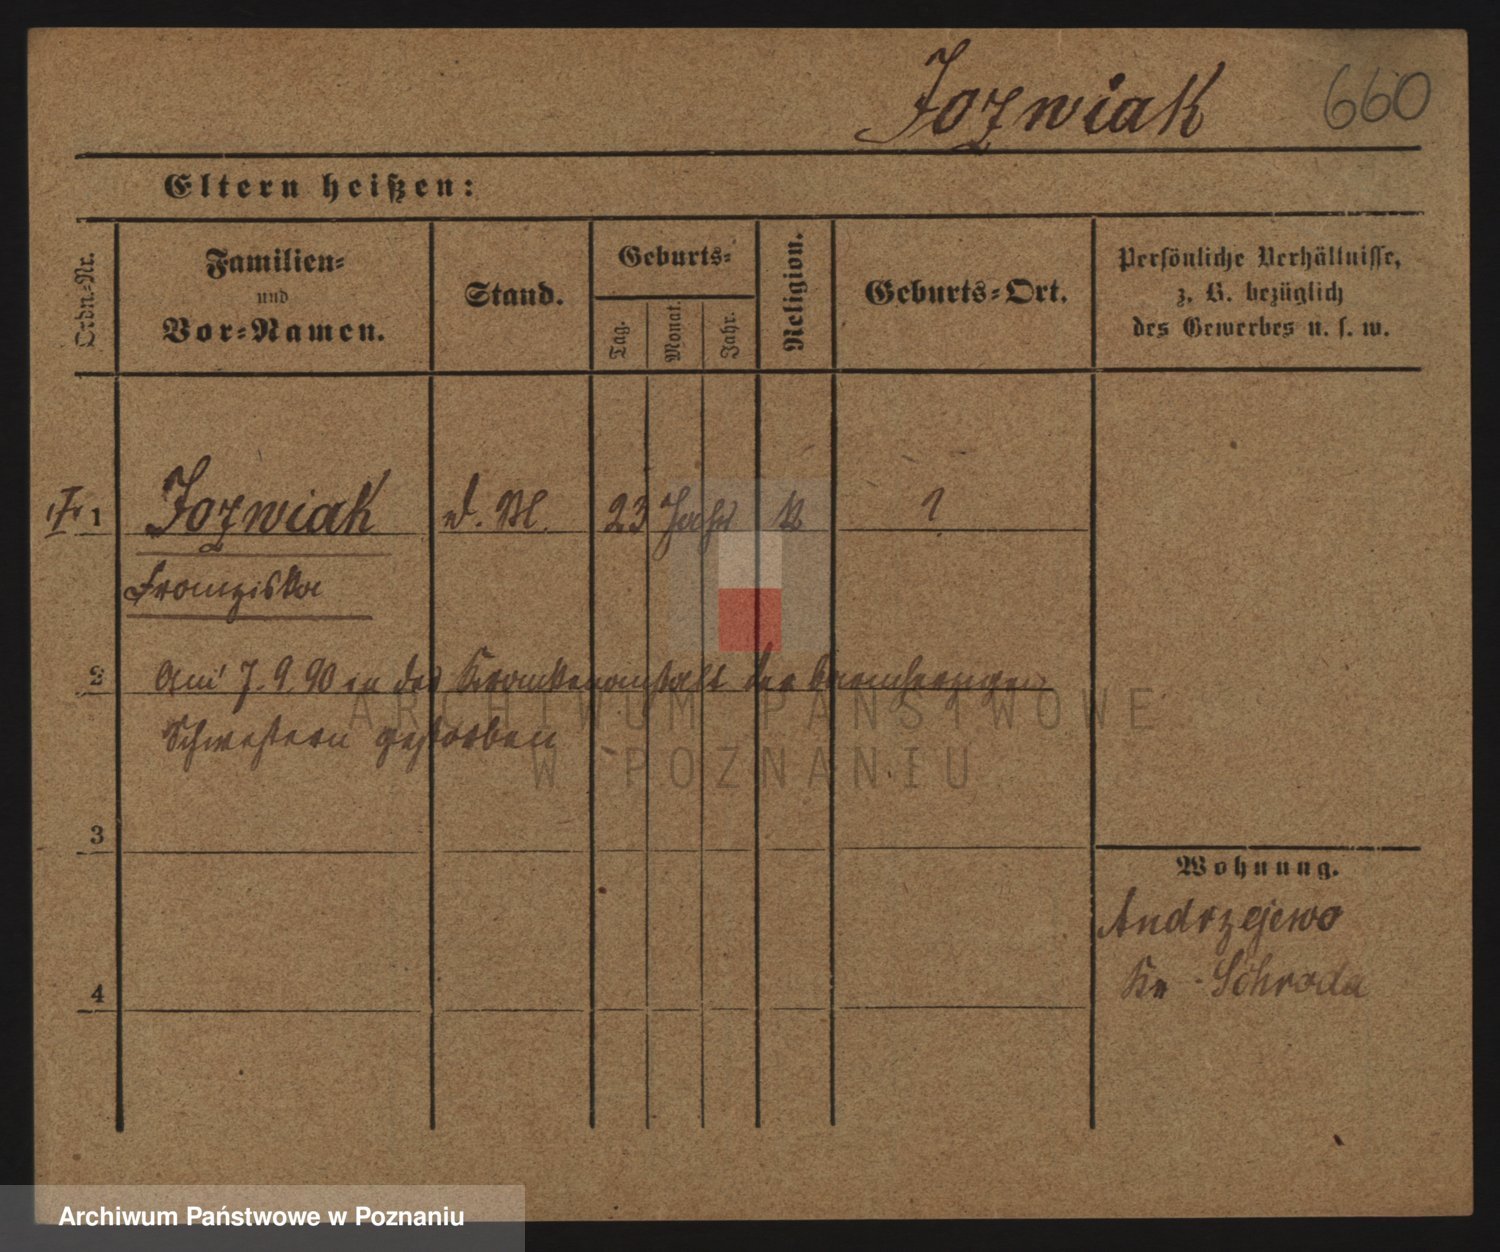 Jozwiak 660
Eltern heißen:
Ordn.-Nr.
Familien-
und
Vor-Namen.
Stand.
Geburts-
Tag.
Monat.
Jahr.
Religion.
Geburts-Ort.
Persönliche Verhältnisse,
z. B. bezüglich
des Gewerbes u. s. w.
1 Jozwiak d. M. 23 Jahr K ?
Franziska
2 Am 7.9.90 in der Krankenanstalt der barmherzigen
Schwestern gestorben
3
Wohnung.
Andrzejewo
Kr. Schroda
4
ARCHIWUM PAŃSTWOWE
W POZNANIU
Archiwum Państwowe w Poznaniu